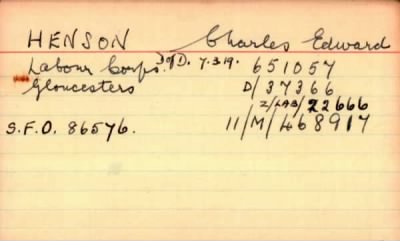 HENSON Charles Edward
Labour Corps. D of D. 7.3.19. 651057
Gloucesters D/37366
Z/LAB/22666
S.F.O. 86576. 11/M/468917